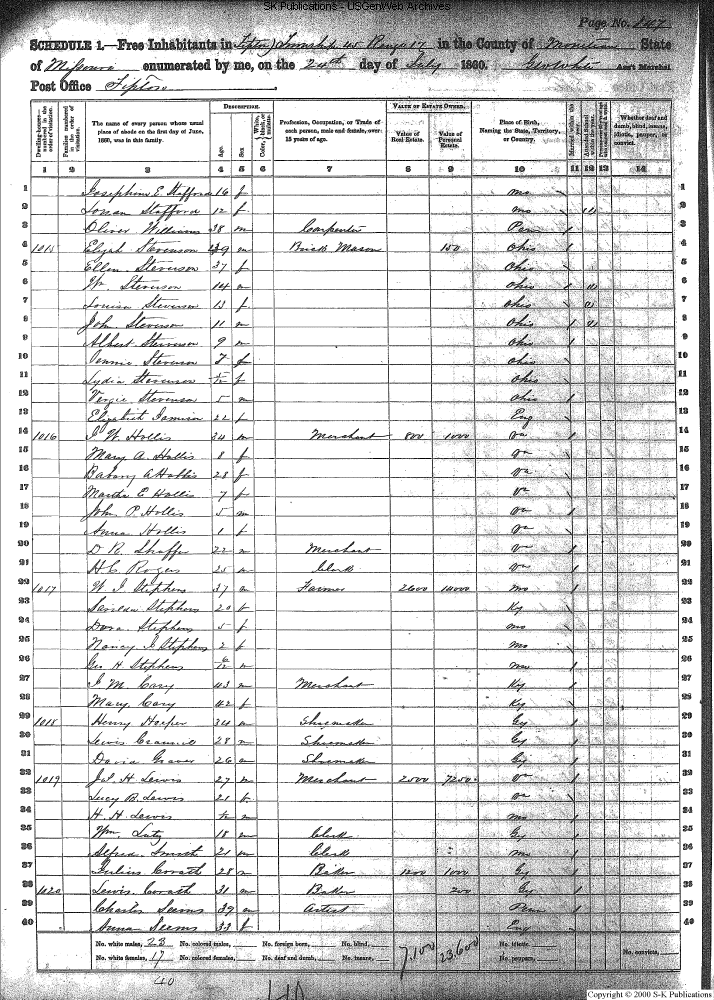 SK Publications - USGenWeb Archives
Page No. 247
SCHEDULE 1.—Free Inhabitants in Tipton Township 45 Range 17 in the County of Moniteau State
of Missouri enumerated by me, on the 24th day of July 1860. Ass't Marshal
Post Office Tipton
Dwelling-houses—numbered in the order of visitation.
Families numbered in the order of visitation.
The name of every person whose usual place of abode on the first day of June, 1860, was in this family.
DESCRIPTION.
Age. Sex. Color, White, black, or mulatto.
Profession, Occupation, or Trade of each person, male and female, over 15 years of age.
VALUE OF ESTATE OWNED.
Value of Real Estate. Value of Personal Estate.
Place of Birth, Naming the State, Territory, or Country.
Married within the year. Attended School within the year.
Whether deaf and dumb, blind, insane, idiotic, pauper, or convict.
1 2 3 4 5 6 7 8 9 10 11 12 13 14
1 Josephine E Stafford 16 f Mo 1
2 Stafford 12 f Mo 2
3 Oliver Williams 38 m Carpenter Pen 3
4 1015 Elijah Stevenson 39 m Brick Mason 150 Ohio 4
5 Ellen Stevenson 37 f Ohio 5
6 Wm Stevenson 14 m Ohio 6
7 Louisa Stevenson 13 f Ohio 7
8 John Stevenson 11 m Ohio 8
9 Albert Stevenson 9 m Ohio 9
10 Stevenson 7 f Ohio 10
11 Lydia Stevenson 5/12 f Ohio 11
12 Stevenson 5 m Ohio 12
13 Elizabeth 22 f Eng 13
14 1016 J W Hollis 34 m Merchant 800 1000 Va 14
15 Mary A. Hollis 8 f Va 15
16 A Hollis 28 f Va 16
17 Martha E Hollis 7 f Va 17
18 John P. Hollis 5 m Va 18
19 Anna Hollis 1 f Va 19
20 D R. Shaffer 22 m Merchant Va 20
21 H C. Rogers 25 m Clerk Va 21
22 1017 W. J Stephens 37 m Farmer 2600 14000 Mo 22
23 Stephens 20 f Ky 23
24 Stephens 5 f Mo 24
25 Nancy J Stephens 2 f Mo 25
26 Geo H Stephens 6/12 m Mo 26
27 J M. Cary 43 m Merchant Ky 27
28 Mary Cary 42 f Ky 28
29 1018 Henry Hoefer 34 m Shoemaker Gy 29
30 Lewis 28 m Shoemaker Gy 30
31 David Graver 26 m Shoemaker Gy 31
32 1019 Jas. H. Lewis 27 m Merchant 2500 7250 Va 32
33 Lucy B. Lewis 21 f Va 33
34 H. H Lewis m Mo 34
35 Wm. Lutz 18 m Clerk Gy 35
36 Alfred 21 m Clerk Mo 36
37 Julius 28 m Baker 1200 1000 Gy 37
38 1020 Lewis 31 m Baker 200 Gy 38
39 Charles Seems 39 m Artist Penn 39
40 Anna Seems 33 f Eng 40
No. white males, 23 No. colored males, No. foreign born, No. blind, 7,100 23,600 No. idiotic, No. convicts,
No. white females, 17 No. colored females, No. deaf and dumb, No. insane, No. paupers,
40
Copyright © 2000 S-K Publications